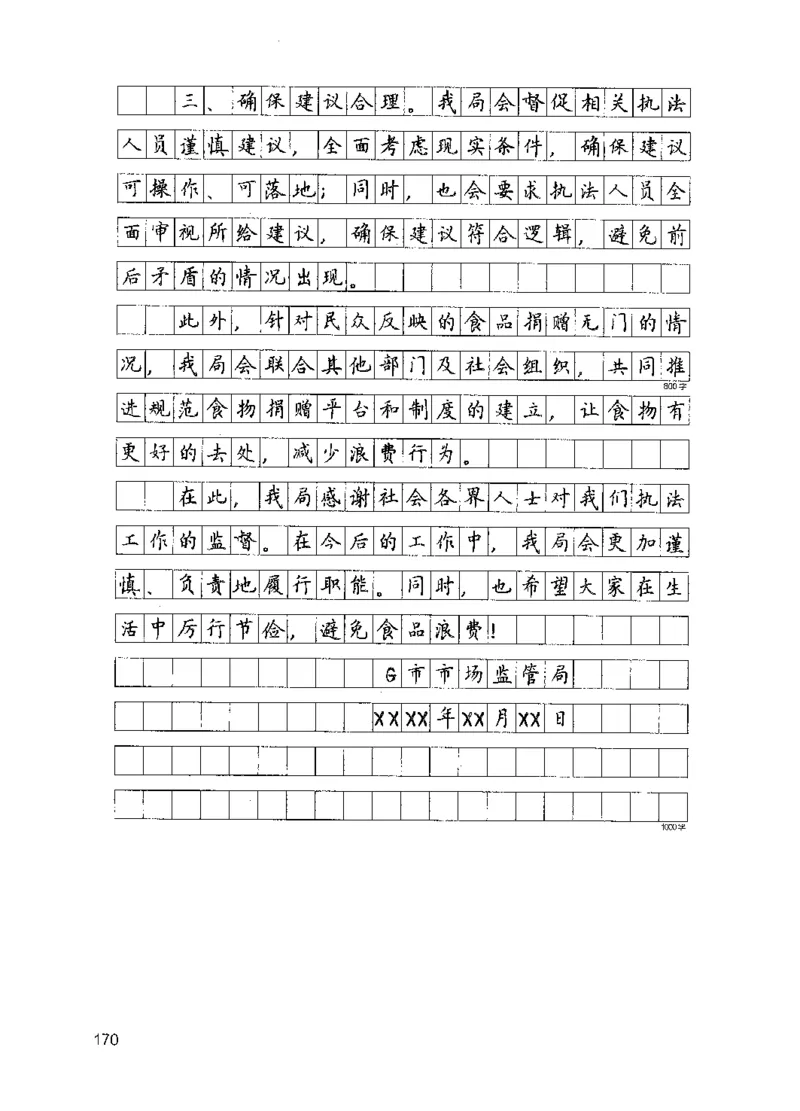 三、确保建议合理。我局会督促相关执法
人员谨慎建议，全面考虑现实条件，确保建议
可操作、可落地；同时，也会要求执法人员全
面审视所给建议，确保建议符合逻辑，避免前
后矛盾的情况出现。
此外，针对民众反映的食品捐赠无门的情
况，我局会联合其他部门及社会组织，共同推
800字
进规范食物捐赠平台和制度的建立，让食物有
更好的去处，减少浪费行为。
在此，我局感谢社会各界人士对我们执法
工作的监督。在今后的工作中，我局会更加谨
慎、负责地履行职能。同时，也希望大家在生
活中厉行节俭，避免食品浪费！
G市市场监管局
XXXX年XX月XX日
1000字
170